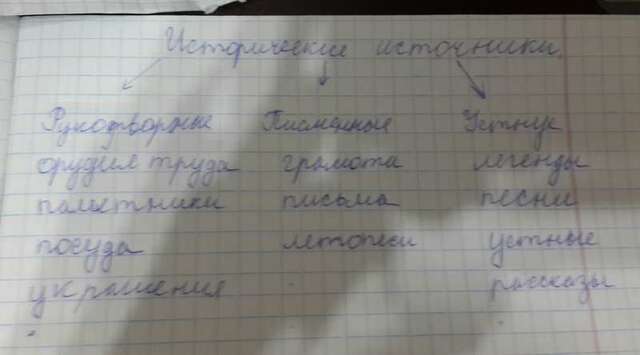 Исторические источники.
Рукотворные Писменные Устные
орудия труда грамота легенды
памятники письма песни
посуда летописи устные
украшения рассказы